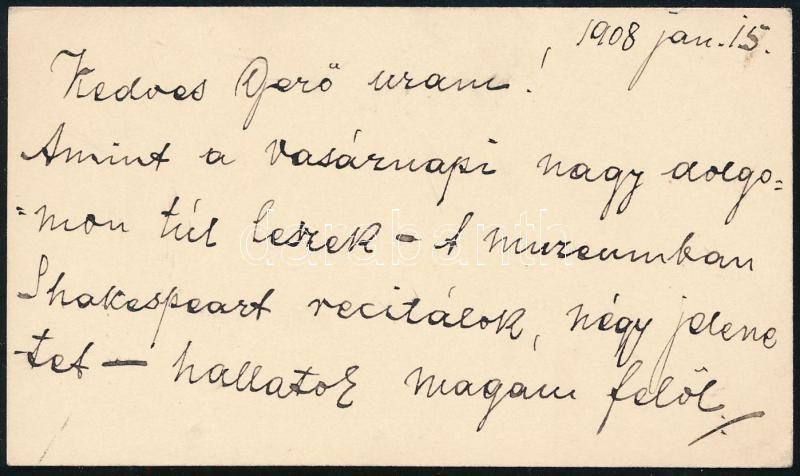 1908 jan. 15.
Kedves Gerő uram!
Amint a vasárnapi nagy dolgo=
=mon túl leszek – A muzeumban
Shakespeart recitálok, négy jelene
tet – hallatok magam felől.
darabanth